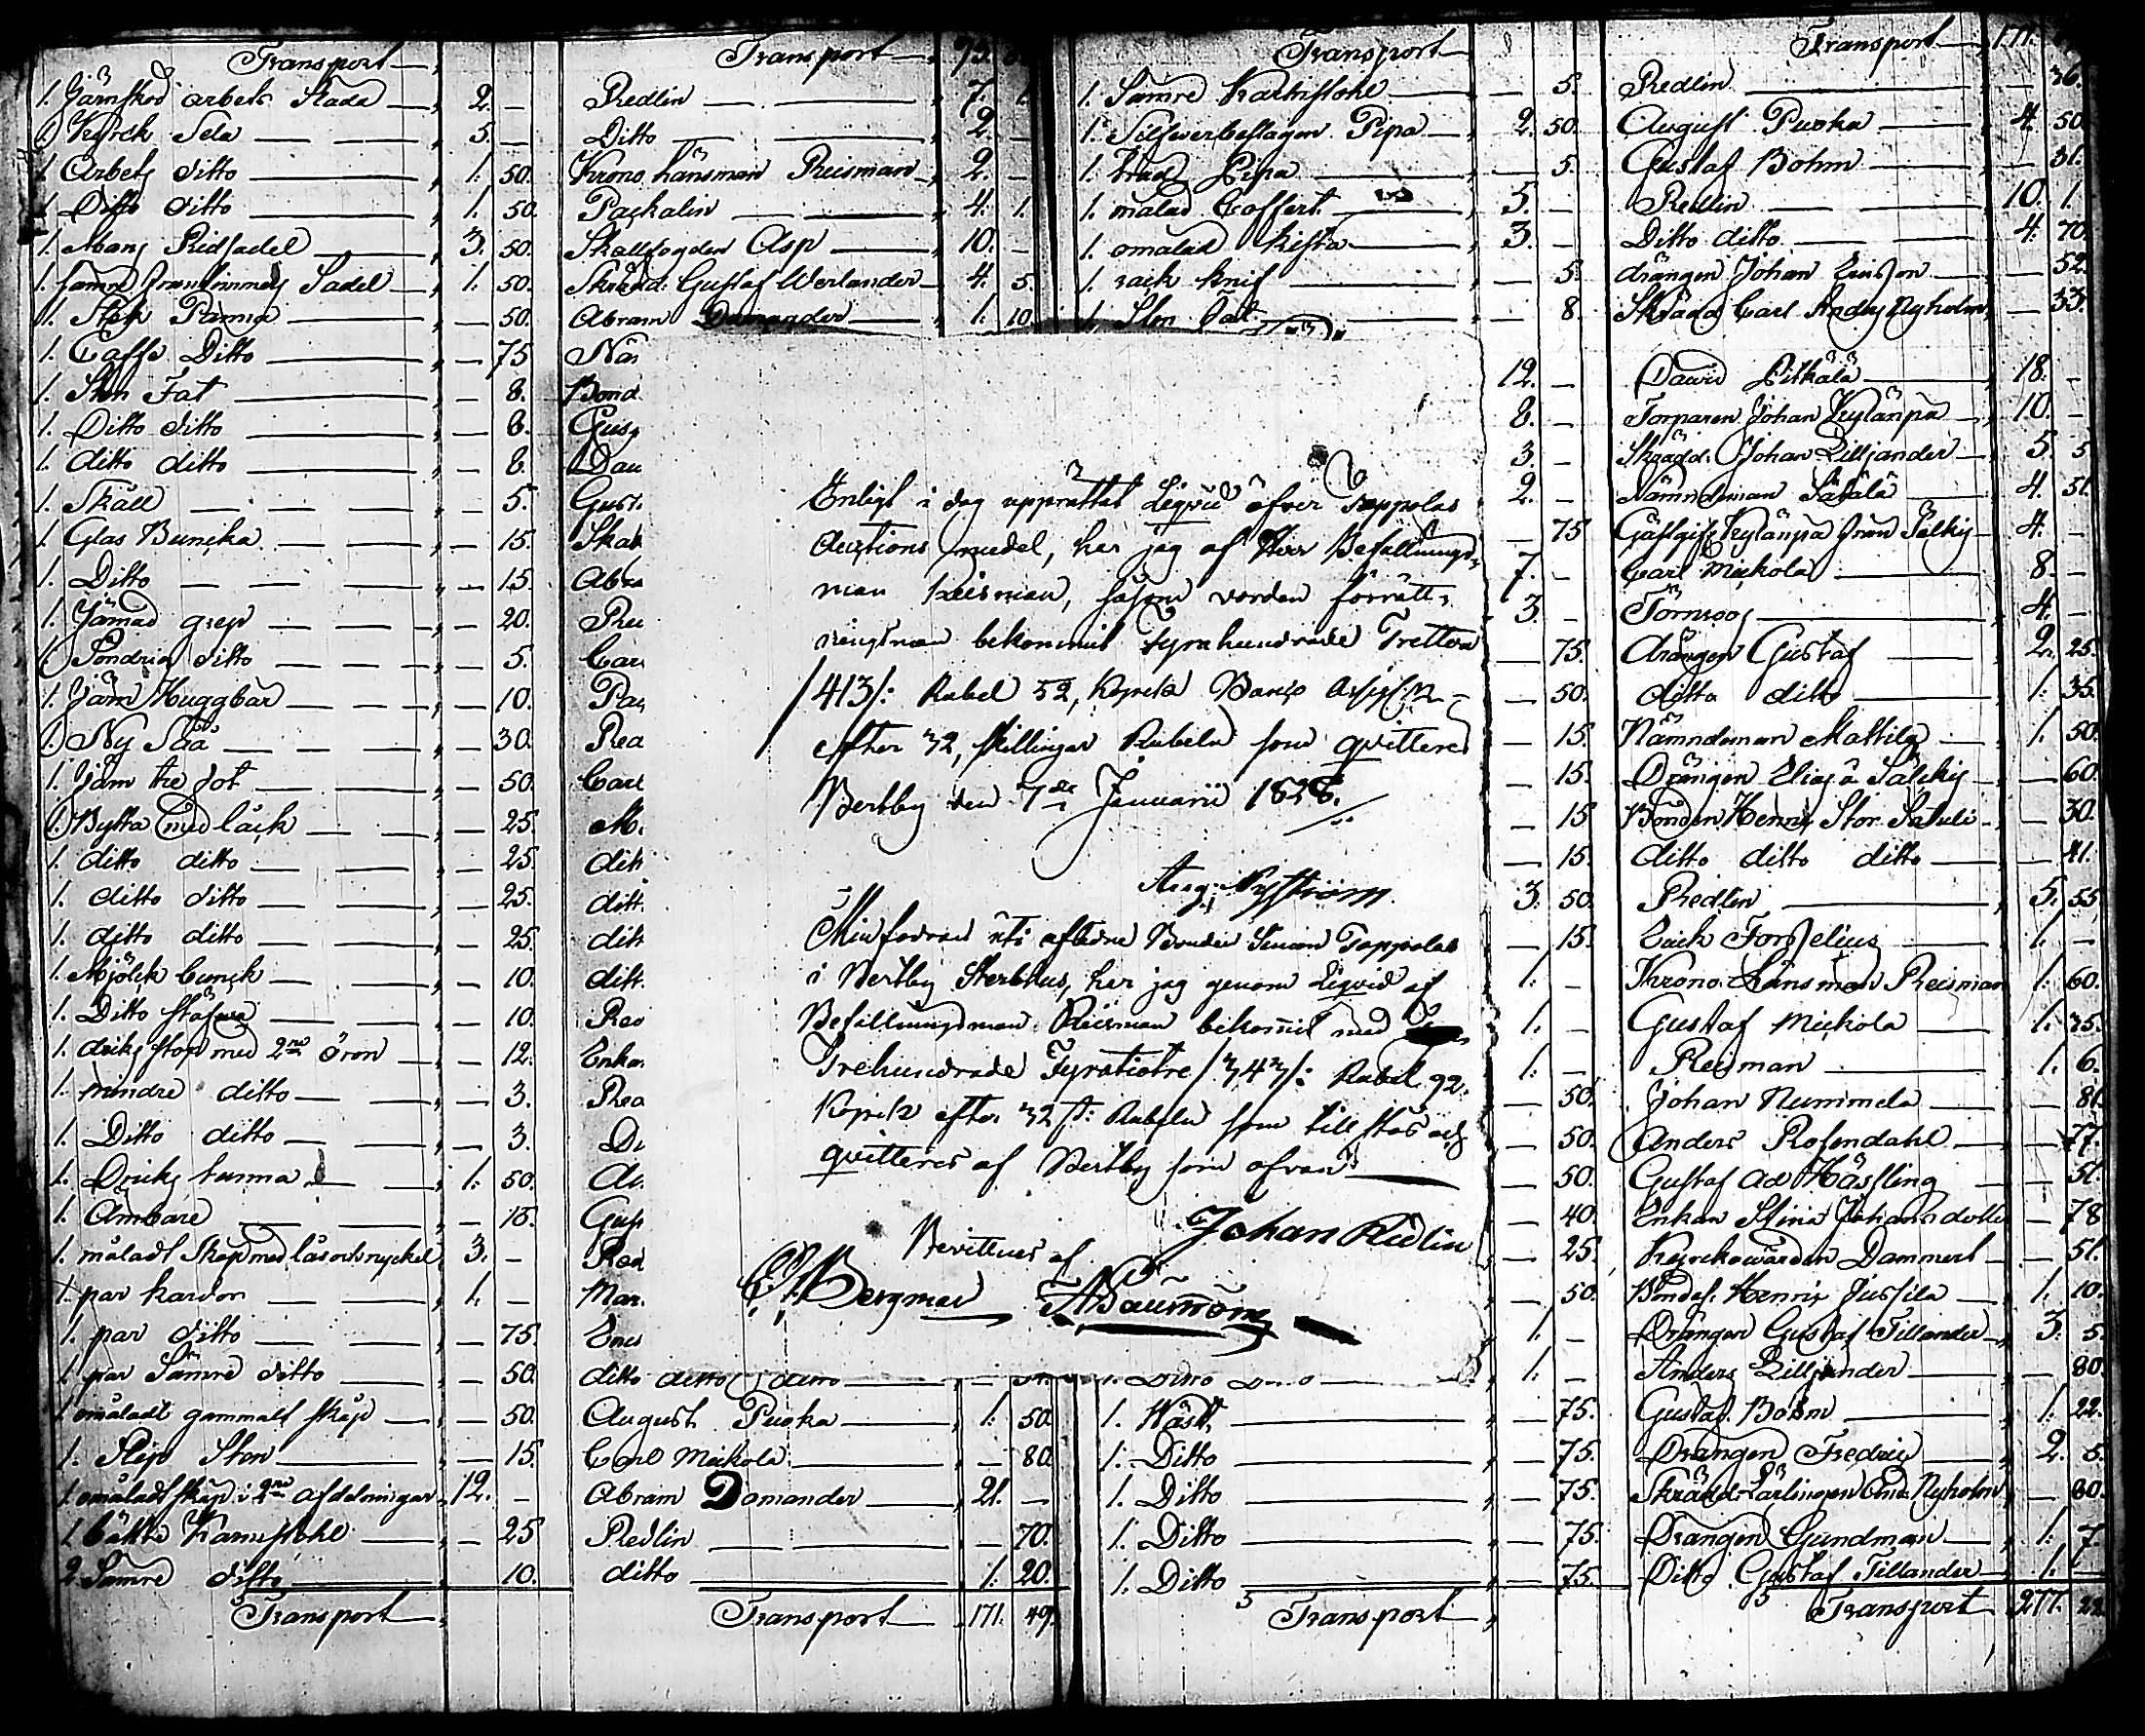 Transport
1. Järnskod arbets Släda 2. —
1 Kyrck Sela 5. —
1 Arbets ditto 1. 50.
1 Ditto ditto 1. 50.
1. Mans Ridsadel 3. 50.
1. Sämre Sadel 1. 50.
1. Stek Panna — 50.
1. Caffe Ditto — 75
1. Sten Fat — 8.
1. Ditto ditto — 8.
1. ditto ditto — 8.
1. Skåll — 5.
1. Glas Buncka — 15.
1. Ditto — 15.
1. Järnad grep — 20.
1. Söndrig ditto — 5.
1. Järn Huggbär — 10.
1. Ny Såå — 30.
1. Järn tre fot — 50.
1. Bytta med låck — 25.
1. ditto ditto — 25.
1. ditto ditto — 25.
1. ditto ditto — 25.
1. Mjölck bunck — 10.
1. Ditto stäfwa — 10.
1. dricks stop med 2ne öron — 12.
1. mindre ditto — 3.
1. Ditto ditto — 3.
1. Dricks tunna 1. 50.
1. Ämbare — 15.
1. måladt Skåp med lås och nyckel 3. —
1. par kardor 1. —
1. par ditto — 75.
1. par Sämre ditto — 50.
1 omåladt gammalt skåp — 50.
1. Slip Sten — 15.
1 omåladt skåp i 2ne afdelningar 12. —
1. bättre Karmstohl — 25
2 Sämre ditto 10.
Transport
Transport 95.
Redlin 7. 1.
Ditto 2. —
Krono länsman Reisman 2. —
Packalin 4. 1.
Skallfogden Asp 10. —
Skrädd. Gustaf Werlander 4. 5.
Abram Damander 1. 10.
Näm
Bond
Gus
Dau
Gust.
Skat
Abra
Reu
Car
Pac
Rea
Carl
M.
ditt
ditt.
ditt
ditt.
Reo
Enka.
Rea
Di
Au
Gus
Red
Mar.
Enc
ditto ditto ditto
August Puoka 1. 50.
Carl Mickola — 80.
Abram Domander 21. —
Redlin — 70.
ditto 1. 20.
Transport 171. 49.
Enligt i dag upprättat Liqvid öfver Toppolas
Auctions medel, har jag af Herr Befallnings-
man Reisman, såsom vorden förrätt-
ningsman bekommit Fyrahundrade Tretton
/413/: Rubel 52, Kopek Banco Assign:
efter 32, Skillingar Rubeln som qvitteras
Nertby den 7de Januarii 1828.
Aug: Nyström
Min fordran uti aflidne Bonden Simon Toppolas
i Nertby Sterbhus, har jag genom Liqvid af
Befallningsman Reisman bekommit med
Trehundrade Fyratiotre /343/: Rubel 92.
Kopek efter 32 s: Rubeln som tillstås och
qvitteras af Nertby som ofvan
Johan Redlin
Bevittnas af
Bergman
Transport
1. Sämre Karmstohl — 5.
1. Silfwerbeslagen Pipa 2. 50.
1. Träd Pipa — 5.
1. målad Coffert 5. —
1. omålad kista 3. —
1. rack knif — 5.
1. Sten Fat — 8.
12. —
8. —
3. —
2. —
— 75
7. —
3. —
— 75.
— 50.
— 15.
— 15.
— 15
— 15.
3. 50.
— 15.
1. —
1. —
1. —
— 50.
— 50.
— 50.
— 40.
— 25.
— 50.
1. —
1. Ditto Ditto 1. —
1. Wäst — 75.
1. Ditto — 75.
1. Ditto — 75.
1. Ditto — 75.
1. Ditto — 75.
Transport
Transport 171.
Redlin — 36.
August Puoka 4. 50
Gustaf Bohm — 31.
Redlin 10. 1.
Ditto ditto 4. 70.
drängen Johan Ericsson — 52.
Skrädd. Carl Anders Nyholm — 33.
Dawid Pitkälä 18. —
Torparen Johan Kylänpä 10. —
Skrädd. Johan Lilljander 5. 5
Nämndeman Satala 4. 51.
Gästgifv. Kylänpä från Sälkis 4. —
Carl Mickola 8. —
Törnroos 4. —
drängen Gustaf 2. 25.
ditto ditto 1. 35.
Nämndeman Mattila 1. 50.
Drängen Elias à Sälckis — 60.
Bonden Henric Stor Satuli — 30.
ditto ditto ditto — 41.
Redlin 5. 55
Erick Forsselius 1. —
Krono Länsman Reisman 1. 60.
Gustaf Mickola 1. 35.
Reisman 1. 6.
Johan Nummela — 81
Anders Rosendahl — 77.
Gustaf Ad Hässling — 51.
Enkan Stina Johansdotter — 78
Kyrckowärden Dammert — 51.
Bondes. Henric Jussila 1. 10.
Drängen Gustaf Tillander 3. 5.
Anders Lilljander — 80
Gustaf Bohm 1. 22.
Drängen Fredric 2. 5.
Skrädd: Lärlingen And. Nyholm — 80.
Drängen Gundman 1. 7
Ditto Gustaf Tillander 1. —
Transport 277. 22.